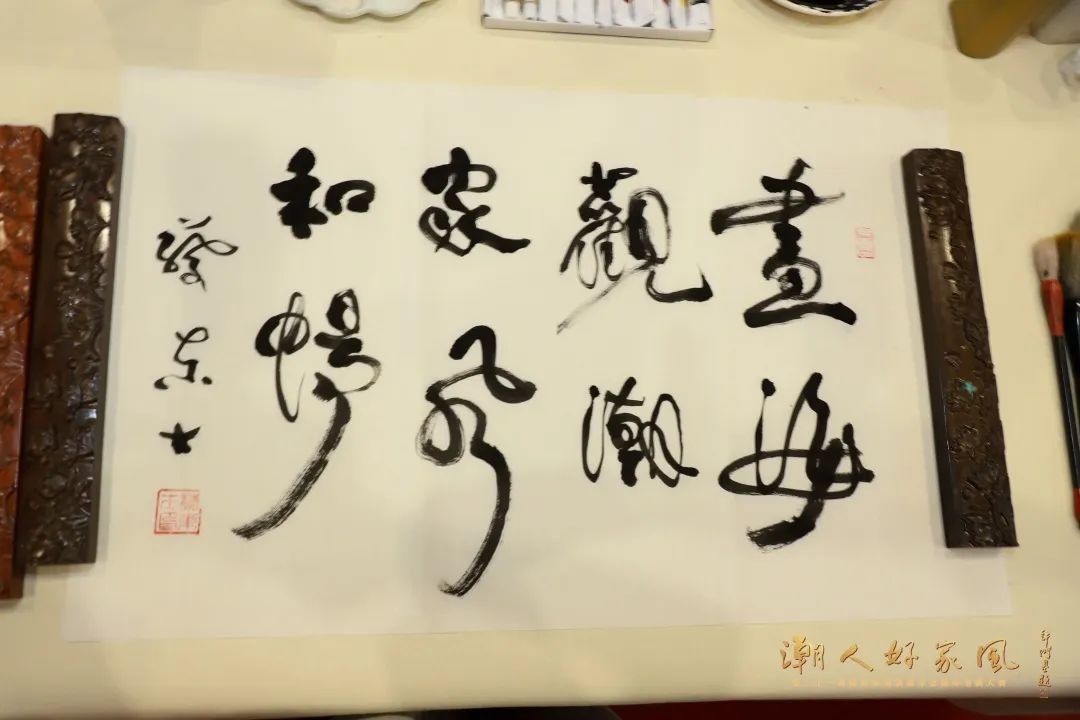 畫海
觀潮
家風
和暢
蔡東士
潮人好家風